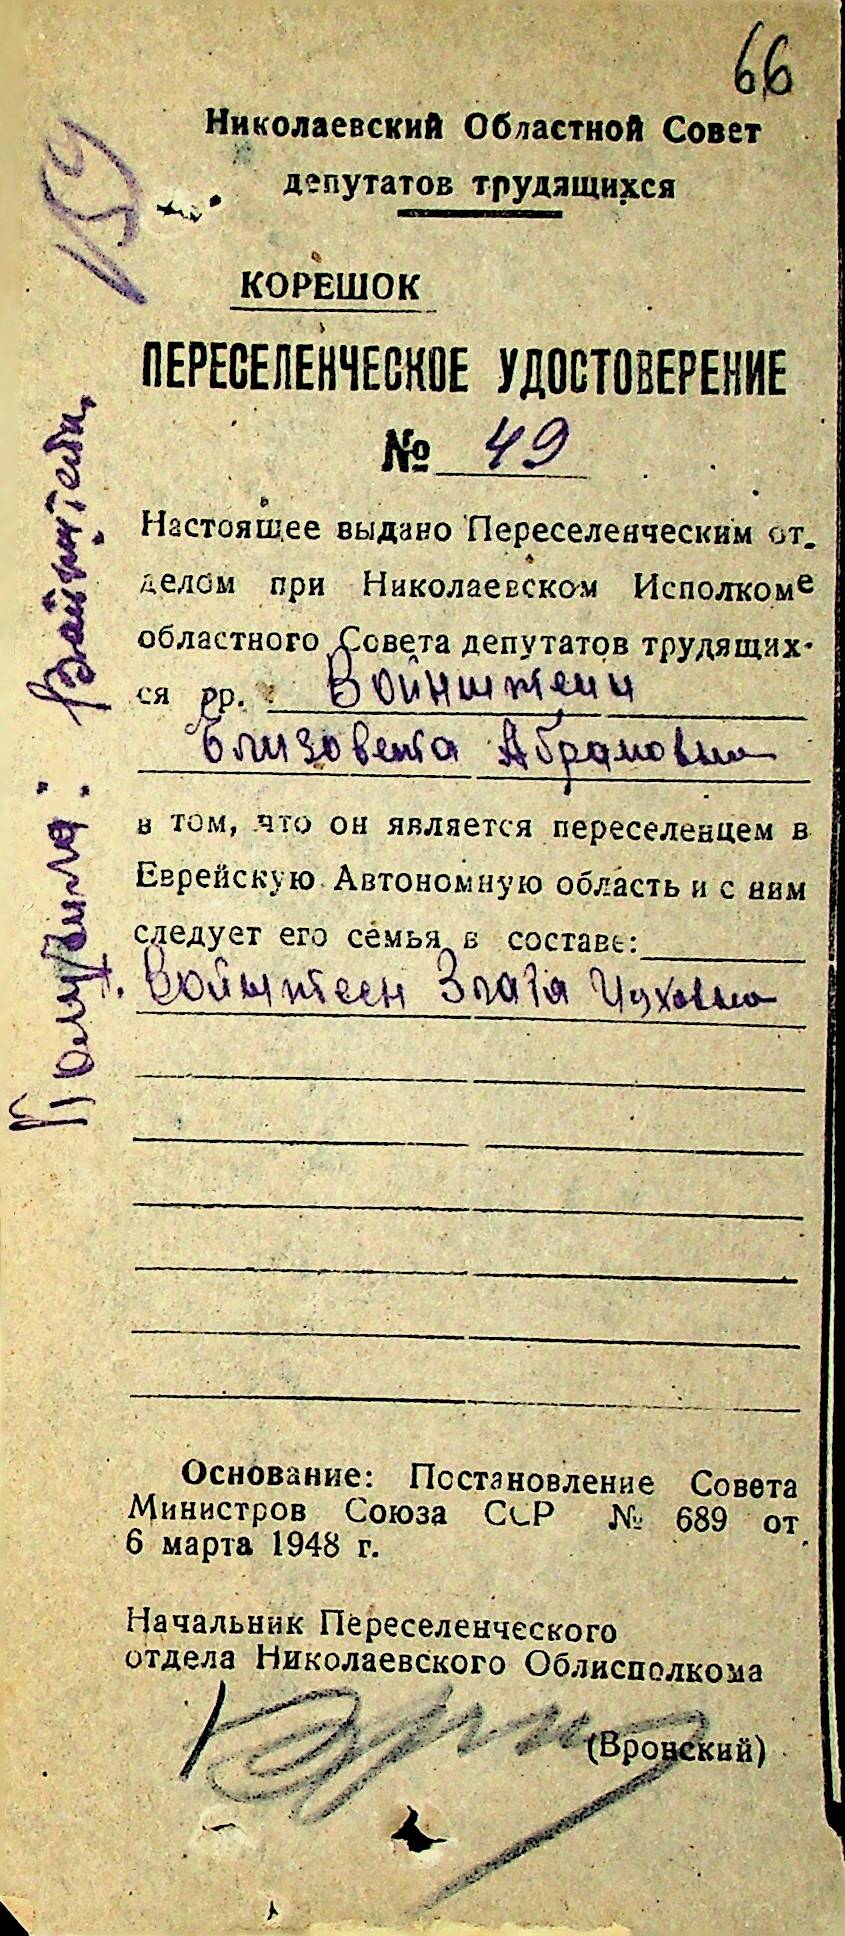 66
Николаевский Областной Совет
депутатов трудящихся
159
КОРЕШОК
ПЕРЕСЕЛЕНЧЕСКОЕ УДОСТОВЕРЕНИЕ
№ 49
Настоящее выдано Переселенческим от-
делом при Николаевском Исполкоме
областного Совета депутатов трудящих-
ся гр. Войнштейн
Елизовета Абрамовна
в том, что он является переселенцем в
Еврейскую Автономную область и с ним
следует его семья в составе:
1. Войнштеен Злата
Основание: Постановление Совета
Министров Союза ССР № 689 от
6 марта 1948 г.
Начальник Переселенческого
отдела Николаевского Облисполкома
(Вронский)
Получила: Вайнштейн